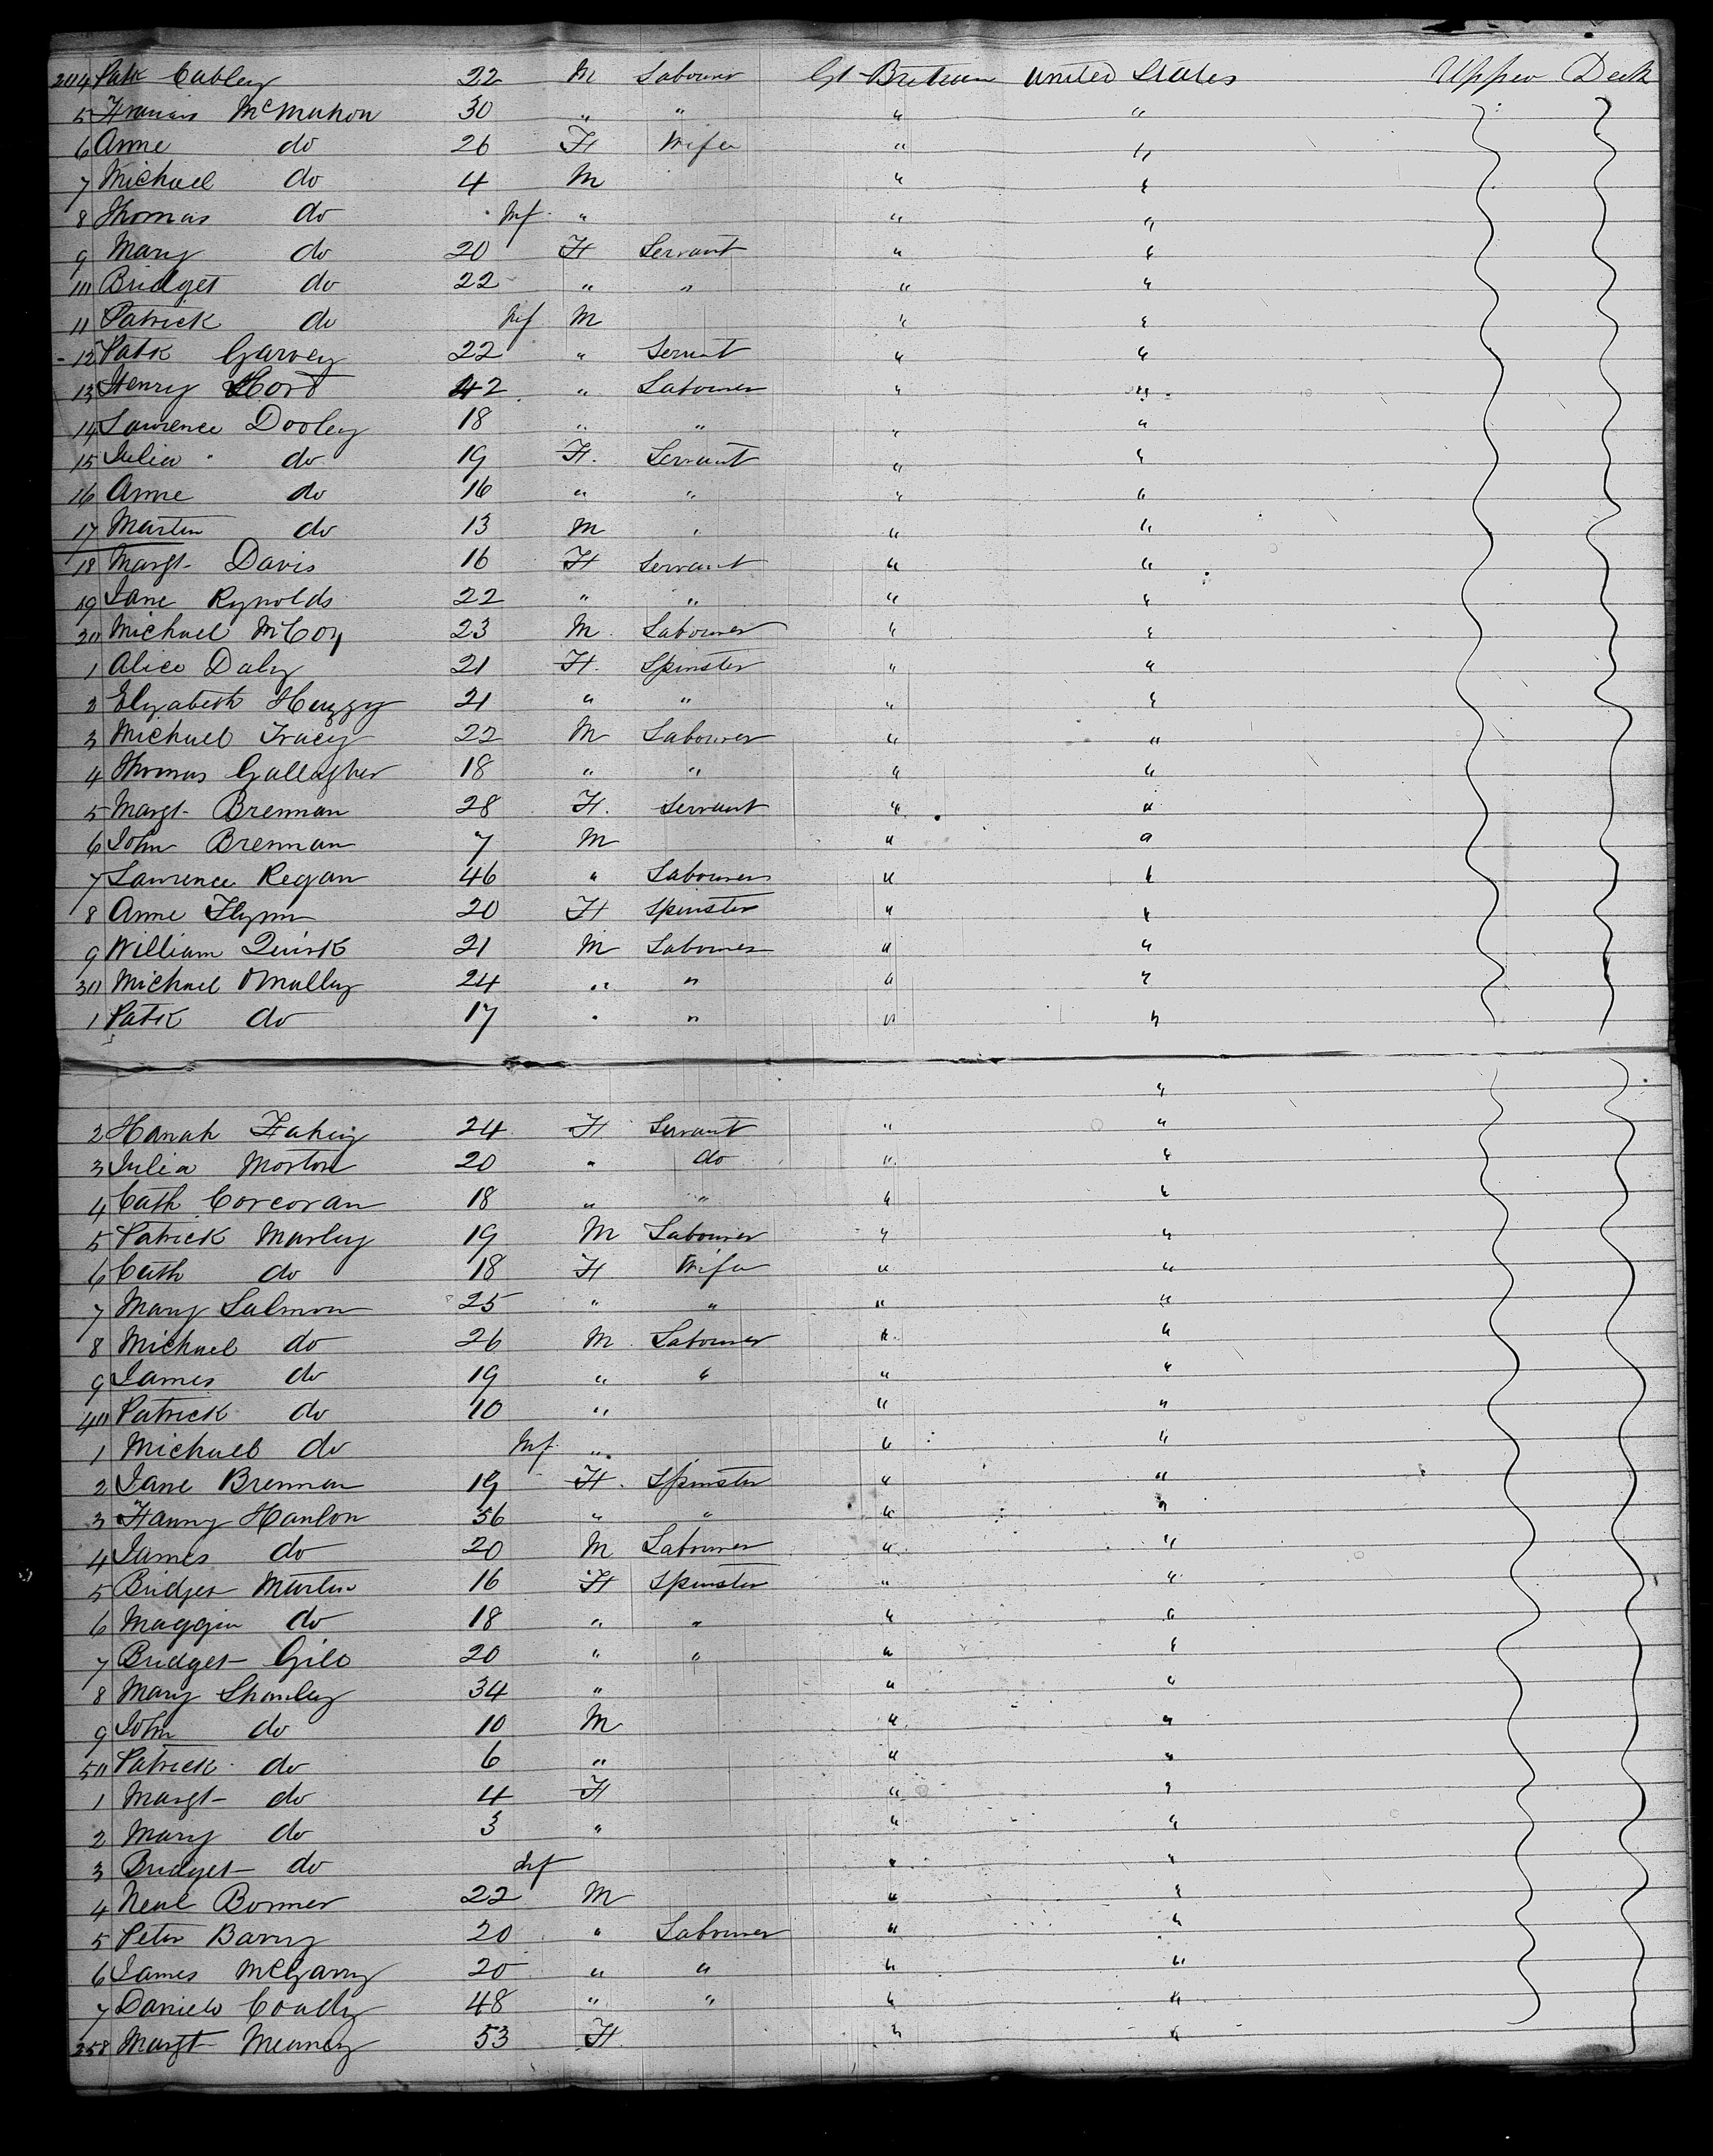 204 Patk Cabley 22 M Labourer Gt Britain United States Upper Deck
5 Francis McMahon 30 " " " "
6 Anne do 26 F Wife " "
7 Michael do 4 M " "
8 Thomas do Inf " " "
9 Mary do 20 F Servant " "
10 Bridget do 22 " " " "
11 Patrick do Inf M " "
12 Patk Garvey 22 " Servnt " "
13 Henry Hort 42 " Labourer " "
14 Lawrence Dooley 18 " " " "
15 Julia do 19 F. Servant " "
16 Anne do 16 " " " "
17 Martin do 13 M " " "
18 Margt Davis 16 F Servant " "
19 Jane Rynolds 22 " " " "
20 Michael McCoy 23 M Labourer " "
1 Alice Daly 21 F. Spinster " "
2 Elizabeth 21 " " " "
3 Michael Tracey 22 M Labourer " "
4 Thomas Gallagher 18 " " " "
5 Margt Brennan 28 F. Servant " "
6 John Brennan 7 M " "
7 Lawrence Regan 46 " Labourer " "
8 Anne Flynn 20 F Spinster " "
9 William Quirk 21 M Labourer " "
30 Michael OMalley 24 " " " "
1 Patk do 17 " " " "
"
2 Hanah Fahey 24 F Servant " "
3 Julia Morton 20 " do " "
4 Cath Corcoran 18 " " " "
5 Patrick Marley 19 M Labourer " "
6 Cath do 18 F Wife " "
7 Mary Salmon 25 " " " "
8 Michael do 26 M Labourer " "
9 James do 19 " " " "
40 Patrick do 10 " " "
1 Michael do Inf " " "
2 Jane Brennan 19 F. Spinster " "
3 Fanny Hanlon 56 " " " "
4 James do 20 M Labourer " "
5 Bridget Martin 16 F Spinster " "
6 Maggie do 18 " " " "
7 Bridget Gill 20 " " " "
8 Mary Shanley 34 " " "
9 John do 10 M " "
50 Patrick do 6 " " "
1 Margt do 4 F " "
2 Mary do 3 " " "
3 Bridget do Inf " "
4 Neal Bonner 22 M " "
5 Peter Barry 20 " Labourer " "
6 James McGarry 20 " " " "
7 Daniel Coady 48 " " " "
258 Margt Meaney 53 F. " "